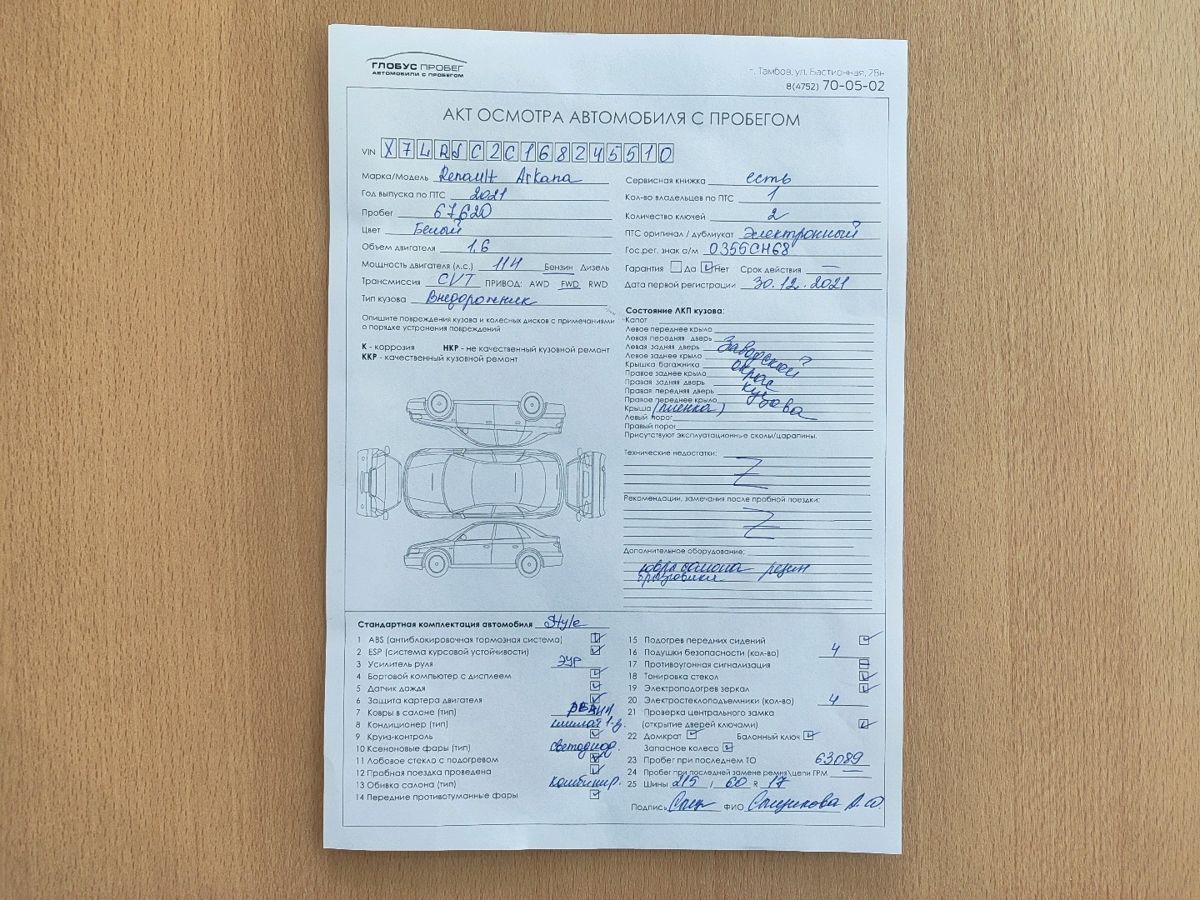 ГЛОБУС ПРОБЕГ
АВТОМОБИЛИ С ПРОБЕГОМ
г. Тамбов, ул. Бастионная, 28н
8(4752) 70-05-02
АКТ ОСМОТРА АВТОМОБИЛЯ С ПРОБЕГОМ
VIN X7LRJC2C168245510
Марка/Модель Renault Arkana
Год выпуска по ПТС 2021
Пробег 67620
Цвет Белый
Объем двигателя 1,6
Мощность двигателя (л.с.) 114 Бензин Дизель
Трансмиссия CVT ПРИВОД: AWD FWD RWD
Тип кузова Внедорожник
Опишите повреждения кузова и колесных дисков с примечаниями
о порядке устронения повреждений
К - коррозия НКР - не качественный кузовной ремонт
ККР - качественный кузовной ремонт
Сервисная книжка есть
Кол-во владельцев по ПТС 1
Количество ключей 2
ПТС оригинал / дубликат Электронный
Гос.рег. знак а/м О355СН68
Гарантия Да Нет Срок действия —
Дата первой регистрации 30.12.2021
Состояние ЛКП кузова:
Капот
Левое переднее крыло
Левая передняя дверь
Левая задняя дверь
Левое заднее крыло
Крышка багажника
Правое заднее крыло
Правая задняя дверь
Правая передняя дверь
Правое переднее крыло
Крыша (пленка)
Левый порог
Правый порог
Заводской
окрас
кузова
Присутствуют эксплуатационные сколы/царапины.
Технические недостатки:
Z
Рекомендации, замечания после пробной поездки:
Z
Дополнительное оборудование:
ковры салона резин
брызговики
Стандартная комплектация автомобиля Style
1 ABS (антиблокировочная тормозная система)
2 ESP (система курсовой устойчивости)
3 Усилитель руля ЭУР
4 Бортовой компьютер с дисплеем
5 Датчик дождя
6 Защита картера двигателя
7 Ковры в салоне (тип) резин
8 Кондиционер (тип) климат 1-з.
9 Круиз-контроль
10 Ксеноновые фары (тип) светодиод.
11 Лобовое стекло с подогревом
12 Пробная поездка проведена
13 Обивка салона (тип) комбинир.
14 Передние противотуманные фары
15 Подогрев передних сидений
16 Подушки безопасности (кол-во) 4
17 Противоугонная сигнализация
18 Тонировка стекол
19 Электроподогрев зеркал
20 Электростеклоподъемники (кол-во) 4
21 Проверка центрального замка
(открытие дверей ключами)
22 Домкрат Балонный ключ
Запасное колесо
23 Пробег при последнем ТО 63089
24 Пробег при последней замене ремня\цепи ГРМ —
25 Шины 215 / 60 R 17
Подпись ФИО